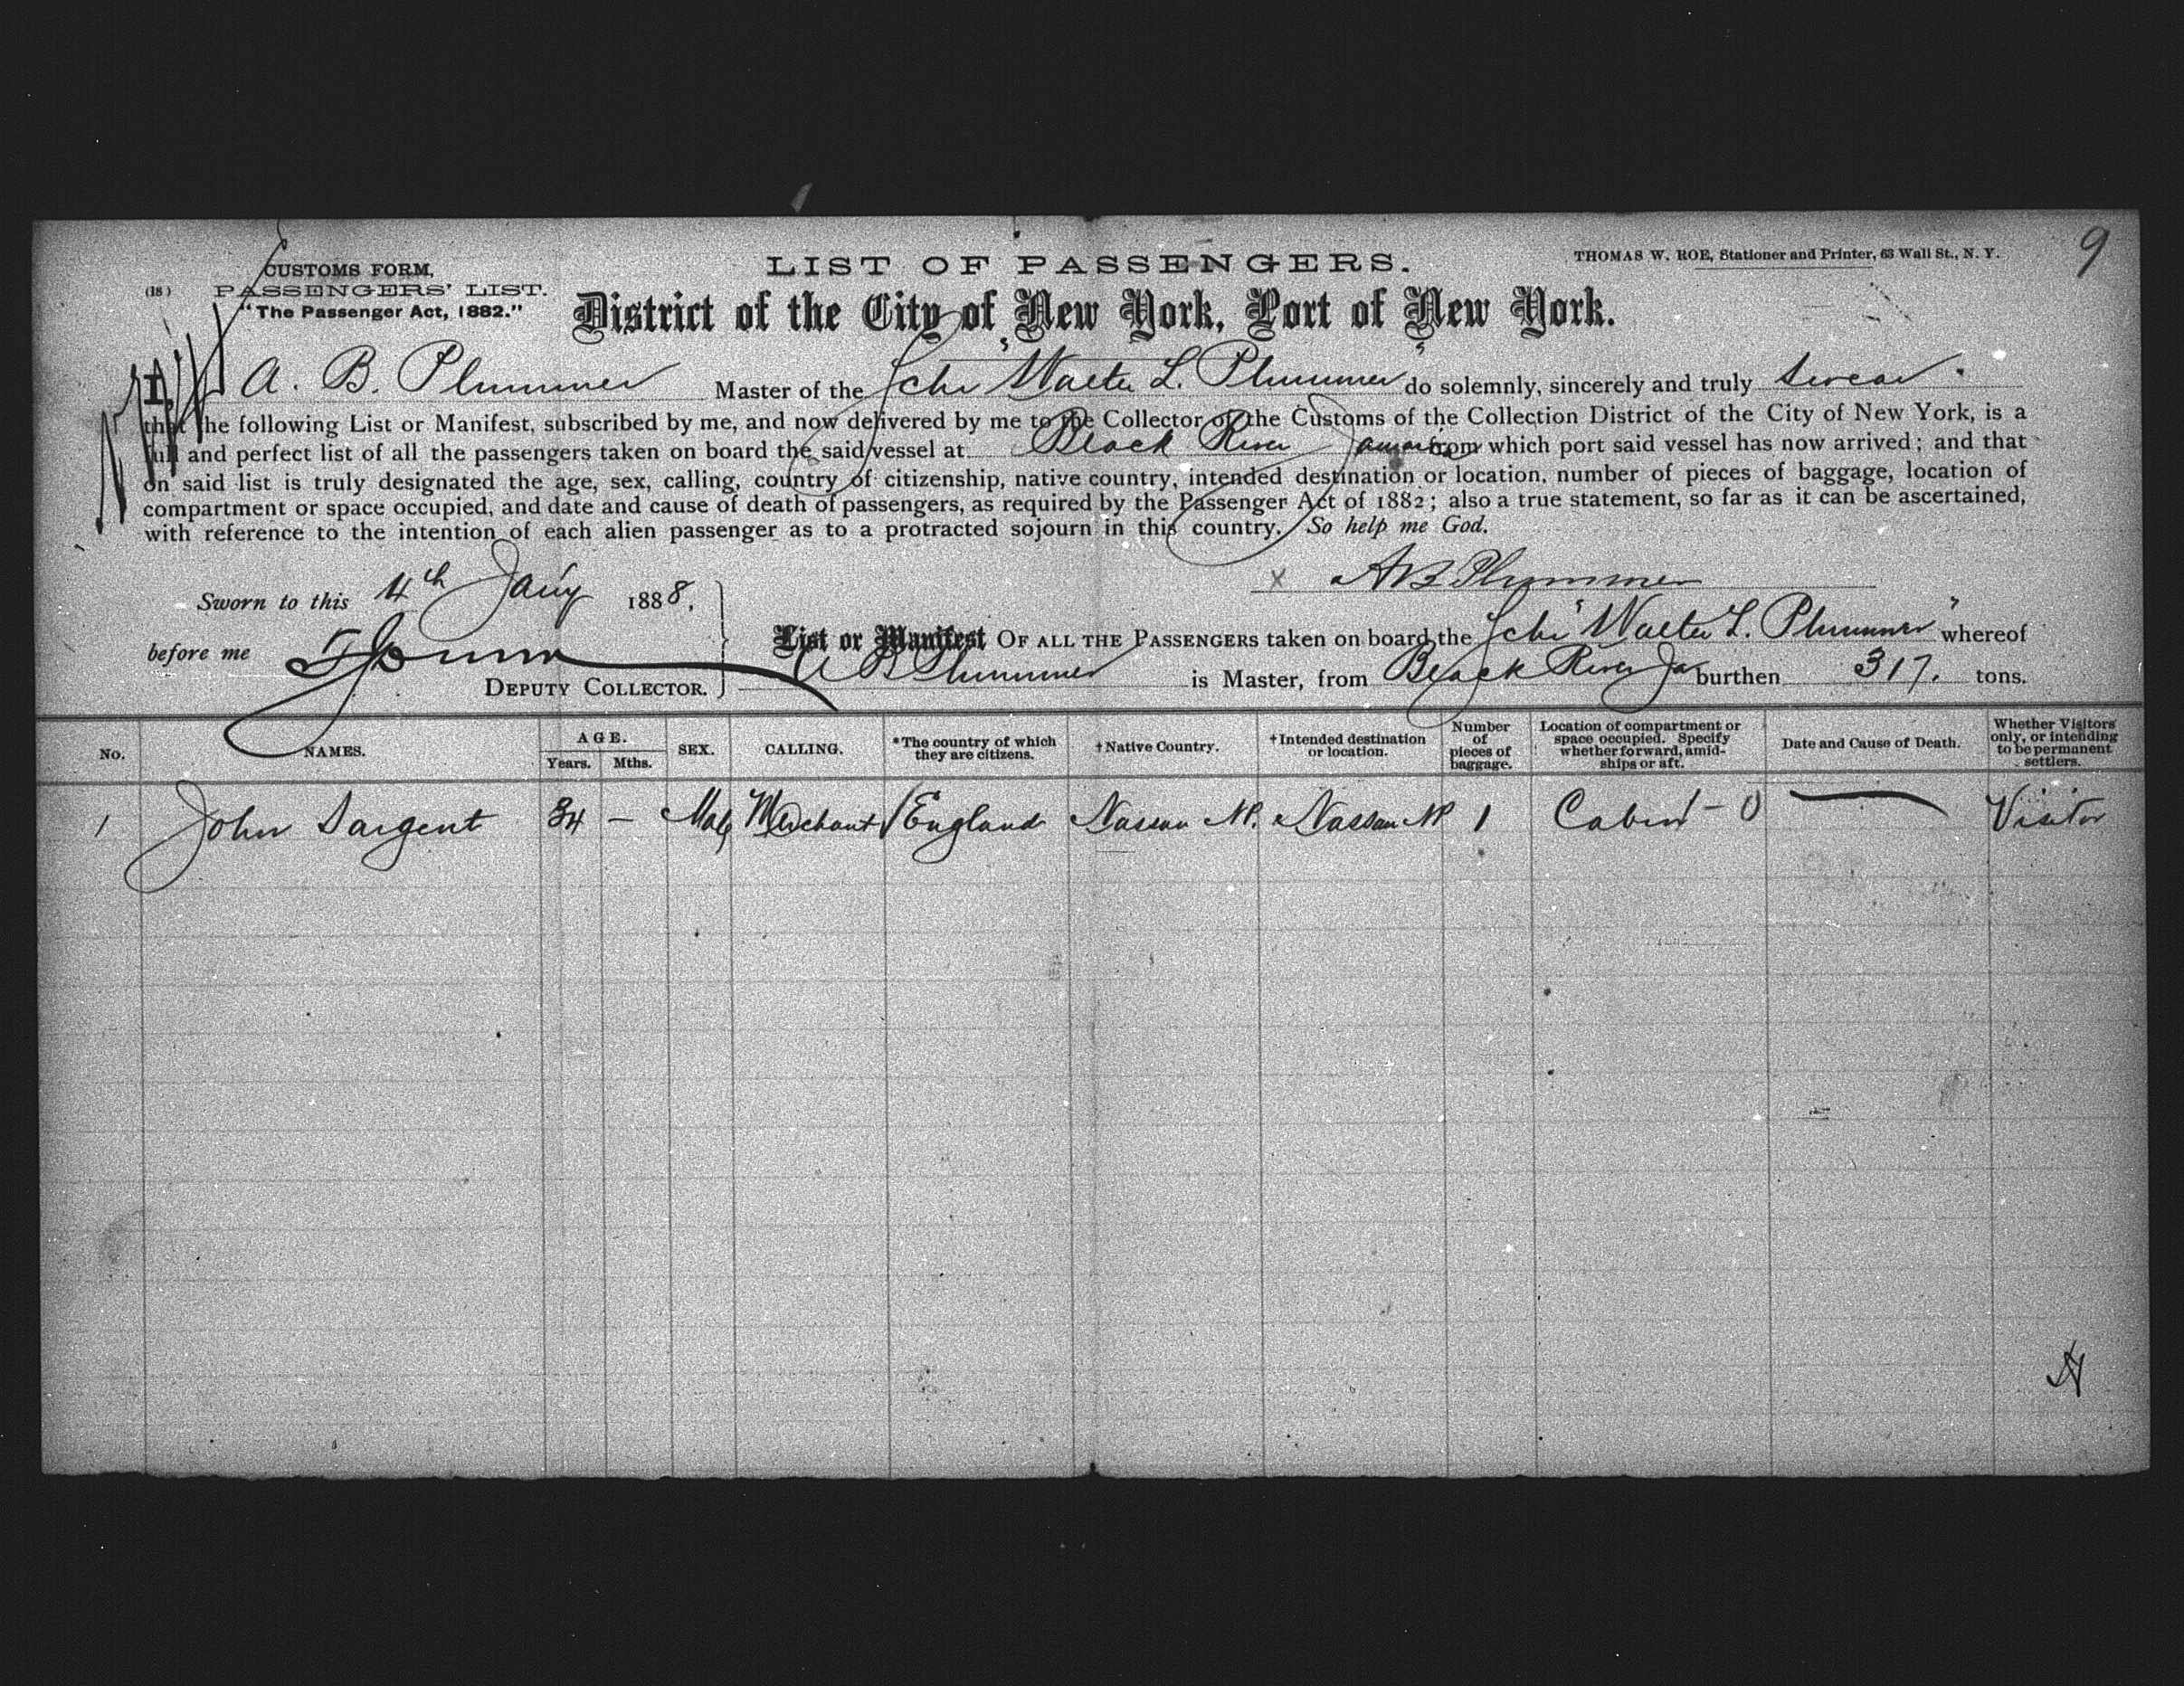 9
CUSTOMS FORM,
(18) PASSENGERS' LIST.
"The Passenger Act, 1882."
LIST OF PASSENGERS.
THOMAS W. ROE, Stationer and Printer, 63 Wall St., N. Y.
District of the City of New York, Port of New York.
I, A. B. Plummer Master of the Schr "Walter L. Plummer" do solemnly, sincerely and truly swear.
that the following List or Manifest, subscribed by me, and now delivered by me to the Collector of the Customs of the Collection District of the City of New York, is a
full and perfect list of all the passengers taken on board the said vessel at Black River Jamaica from which port said vessel has now arrived; and that
on said list is truly designated the age, sex, calling, country of citizenship, native country, intended destination or location, number of pieces of baggage, location of
compartment or space occupied, and date and cause of death of passengers, as required by the Passenger Act of 1882; also a true statement, so far as it can be ascertained,
with reference to the intention of each alien passenger as to a protracted sojourn in this country. So help me God.
x AB Plummer
Sworn to this 4th Jany 1888,
before me
DEPUTY COLLECTOR.
List or Manifest OF ALL THE PASSENGERS taken on board the Schr "Walter L. Plummer" whereof
A B Plummer is Master, from Black River Ja burthen 317. tons.
No. NAMES. AGE. Years. Mths. SEX. CALLING. *The country of which they are citizens. †Native Country. †Intended destination or location. Number of pieces of baggage. Location of compartment or space occupied. Specify whether forward, amidships or aft. Date and Cause of Death. Whether Visitors only, or intending to be permanent settlers.
1 John Sargent 34 — Male Merchant England Nassau NP. Nassau NP 1 Cabin — Visitor